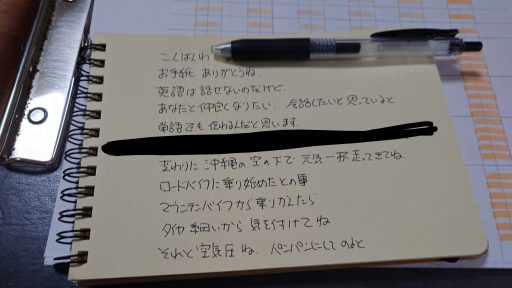 こんばんわ
お手紙 ありがとうね.
英語は話せないのだけど.
あなたと仲良くなりたい. 会話したいと思っていると
単語でも伝わるんだと思います.
変わりに 沖縄の空の下で 元気一杯 走ってきてね
ロードバイクに乗り始めたとの事
マウンテンバイクから乗りかえたら
タイヤ 細いから 気を付けてね
それと 空気圧 ね. パンパンにして のると